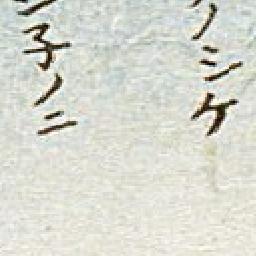 ノシケ
子ノニ